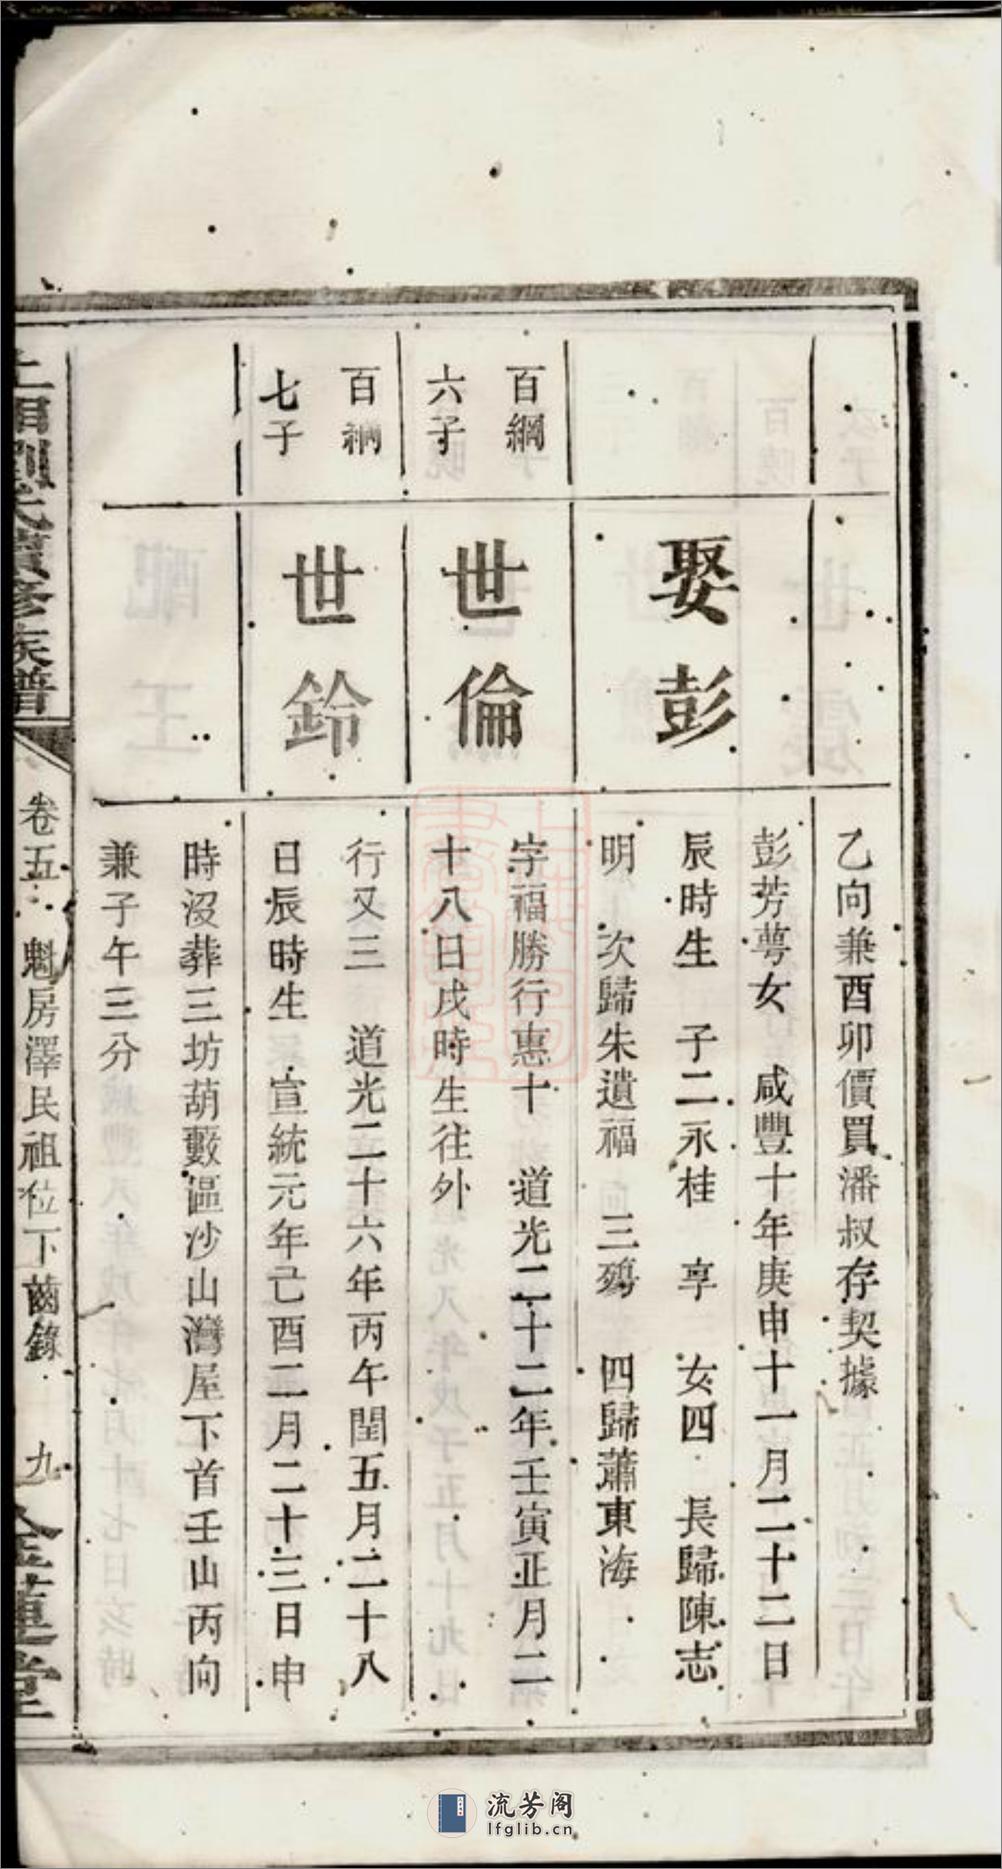 乙向兼酉卯價買潘叔存契據
娶彭
彭芳萼女　咸豐十年庚申十一月二十二日
辰時生　子二永桂　享　女四　長歸陳志
明　次歸朱遺福　三殤　四歸蕭東海
百綱
六子
世倫
字福勝行惠十　道光二十二年壬寅正月二
十八日戌時生往外
百綱
七子
世鈴
行又三　道光二十六年丙午閏五月二十八
日辰時生　宣統元年己酉二月二十三日申
時沒葬三坊葫藪區沙山灣屋下首壬山丙向
兼子午三分
上湘劉氏續修族譜
卷五　魁房澤民祖位下齒錄　九
金蓮堂
流芳阁
lfglib.cn